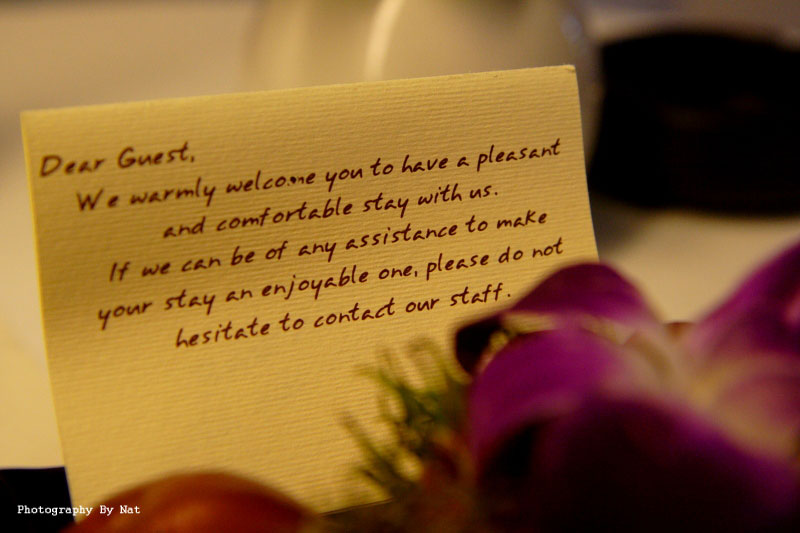 Dear Guest,
We warmly welcome you to have a pleasant
and comfortable stay with us.
If we can be of any assistance to make
your stay an enjoyable one, please do not
hesitate to contact our staff.
Photography By Nat